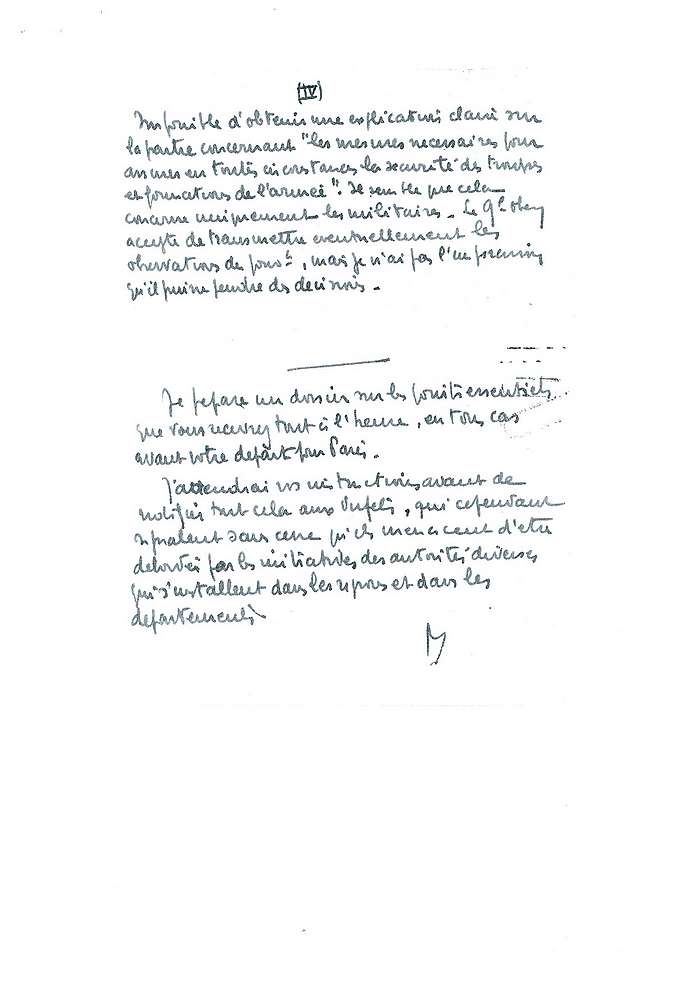 (IV)
Impossible d'obtenir une explication claire sur
la partie concernant "les mesures necessaires pour
assurer en toutes circonstances la securité des troupes
et formations de l'armée". Il semble que cela
concerne uniquement les militaires. Le Gal
accepte de transmettre eventuellement les
observations de , mais je n'ai pas l'impression
qu'il puisse prendre des decisions.
Je prepare un dossier sur les points essentiels
que vous recevrez tout à l'heure, en tous cas
avant votre départ pour Paris.
J'attendrai vos instructions avant de
notifier tout cela aux Prefets, qui cependant
signalent sans cesse qu'ils menacent d'etre
debordés par les initiatives des autorités diverses
qui s'installent dans les regions et dans les
departements.